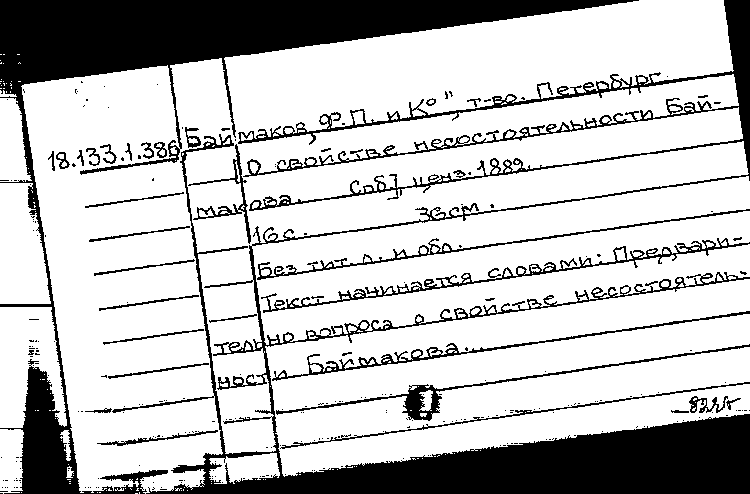 18.133.1.386 „Баймаков, Ф.П. и К°", т-во. Петербург
[О свойстве несостоятельности Бай-
макова. Спб], ценз. 1882.
16 с. 36 см.
Без тит. л. и обл.
Текст начинается словами: Предвари-
тельно вопроса о свойстве несостоятель-
ности Баймакова...